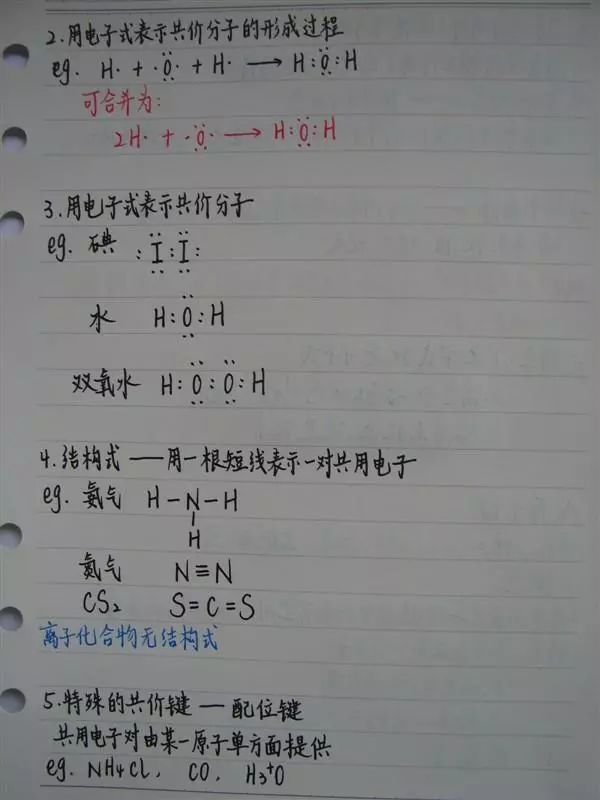 2.用电子式表示共价分子的形成过程
eg. H· + ·Ö· + H· ⟶ H:Ö:H
可合并为:
2H· + ·Ö· ⟶ H:Ö:H
3.用电子式表示共价分子
eg. 碘 :I:I:
水 H:O:H
双氧水 H:O:O:H
4.结构式 —— 用一根短线表示一对共用电子
eg. 氨气 H-N-H
H
氮气 N≡N
CS₂ S=C=S
离子化合物无结构式
5.特殊的共价键 — 配位键
共用电子对由某一原子单方面提供
eg. NH4Cl, CO, H₃⁺O